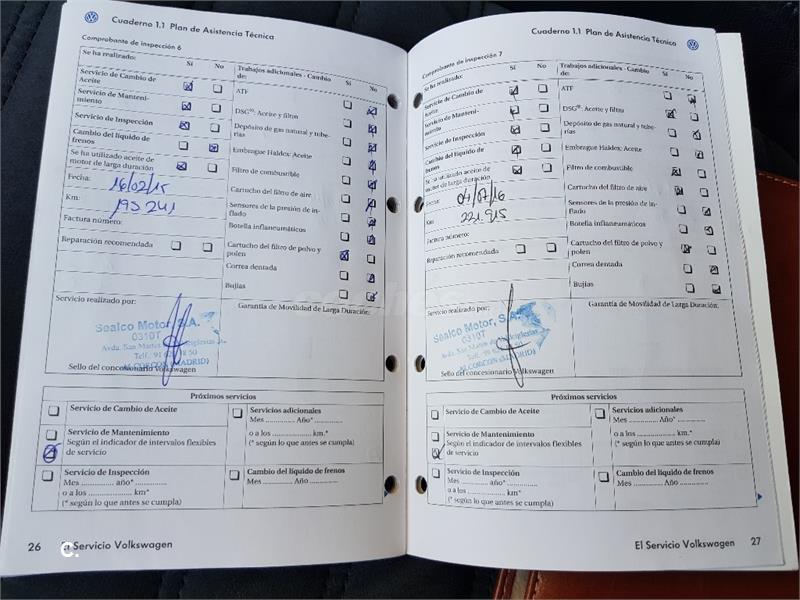 Cuaderno 1.1 Plan de Asistencia Técnica
Comprobante de inspección 6
Se ha realizado:
Sí No
Trabajos adicionales - Cambio de:
Sí No
Servicio de Cambio de
Aceite
Servicio de Manteni-
miento
Servicio de Inspección
Cambio del líquido de
frenos
Se ha utilizado aceite de
motor de larga duración
Fecha: 16/02/15
Km: 195 241
Factura número:
Reparación recomendada
ATF
DSG®: Aceite y filtro
Depósito de gas natural y tube-
rías
Embrague Haldex: Aceite
Filtro de combustible
Cartucho del filtro de aire
Sensores de la presión de in-
flado
Botella inflaneumáticos
Cartucho del filtro de polvo y
polen
Correa dentada
Bujías
Servicio realizado por:
Garantía de Movilidad de Larga Duración:
Sealco Motor, S.A.
0310T
Avda. San Martín
Telf.: 91
ALCORCON (MADRID)
Sello del concesionario Volkswagen
Próximos servicios
Servicio de Cambio de Aceite
Servicio de Mantenimiento
Según el indicador de intervalos flexibles
de servicio
Servicio de Inspección
Mes ............... año* ...............
o a los ............... km*
(* según lo que antes se cumpla)
Servicios adicionales
Mes ............... Año* ...............
o a los ............... km.*
(* según lo que antes se cumpla)
Cambio del líquido de frenos
Mes ............... Año ...............
26 El Servicio Volkswagen
Cuaderno 1.1 Plan de Asistencia Técnica
Comprobante de inspección 7
Se ha realizado:
Sí No
Trabajos adicionales - Cambio
de:
Sí No
Servicio de Cambio de
Aceite
Servicio de Manteni-
miento
Servicio de Inspección
Cambio del líquido de
frenos
Se ha utilizado aceite de
motor de larga duración
Fecha: 04/07/16
Km 221.915
Factura número:
Reparación recomendada
ATF
DSG®: Aceite y filtro
Depósito de gas natural y tube-
rías
Embrague Haldex: Aceite
Filtro de combustible
Cartucho del filtro de aire
Sensores de la presión de in-
flado
Botella inflaneumáticos
Cartucho del filtro de polvo y
polen
Correa dentada
Bujías
Servicio realizado por:
Garantía de Movilidad de Larga Duración:
Sealco Motor, S.A.
0310T
Avda. San Martín
Telf.: 91
ALCORCON (MADRID)
Sello del concesionario Volkswagen
Próximos servicios
Servicio de Cambio de Aceite
Servicio de Mantenimiento
Según el indicador de intervalos flexibles
de servicio
Servicio de Inspección
Mes ............... año* ...............
o a los ............... km*
(* según lo que antes se cumpla)
Servicios adicionales
Mes ............... Año* ...............
o a los ............... km.*
(* según lo que antes se cumpla)
Cambio del líquido de frenos
Mes ............... Año ...............
El Servicio Volkswagen 27